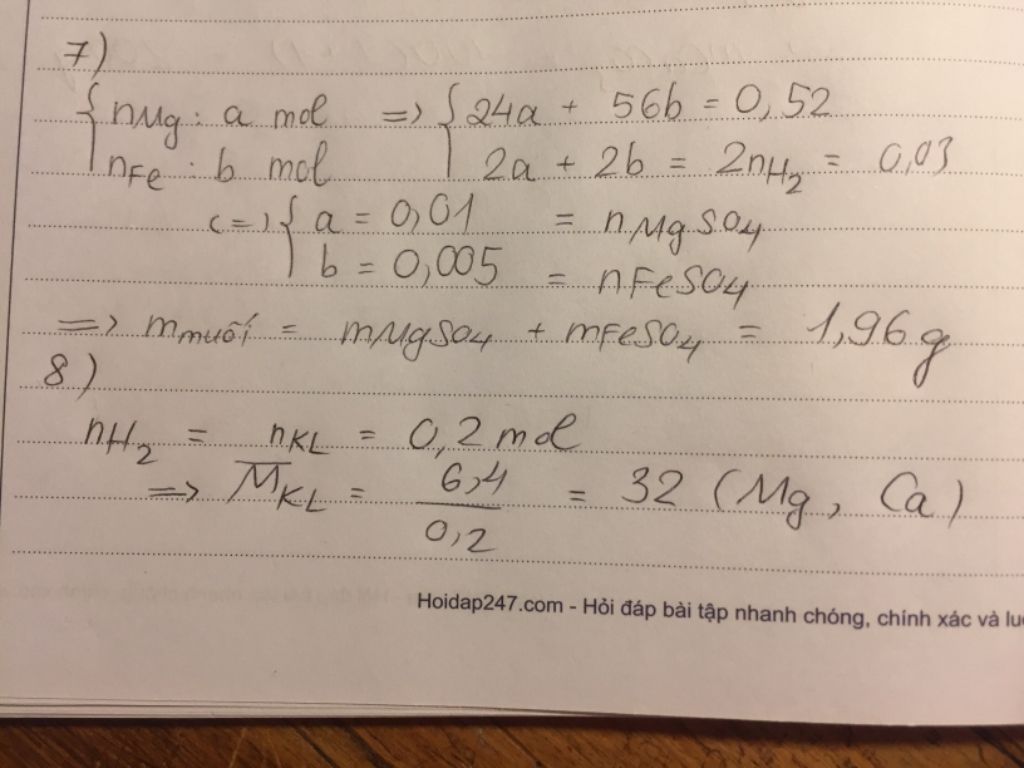 7)
{ nMg : a mol => { 24a + 56b = 0,52
nFe : b mol 2a + 2b = 2nH₂ = 0,03
<=> { a = 0,01 = nMgSO4
b = 0,005 = nFeSO4
=> mmuối = mMgSO4 + mFeSO4 = 1,96 g
8)
nH₂ = nKL = 0,2 mol
=> M̅KL = 6,4 / 0,2 = 32 (Mg, Ca)
Hoidap247.com - Hỏi đáp bài tập nhanh chóng, chính xác và